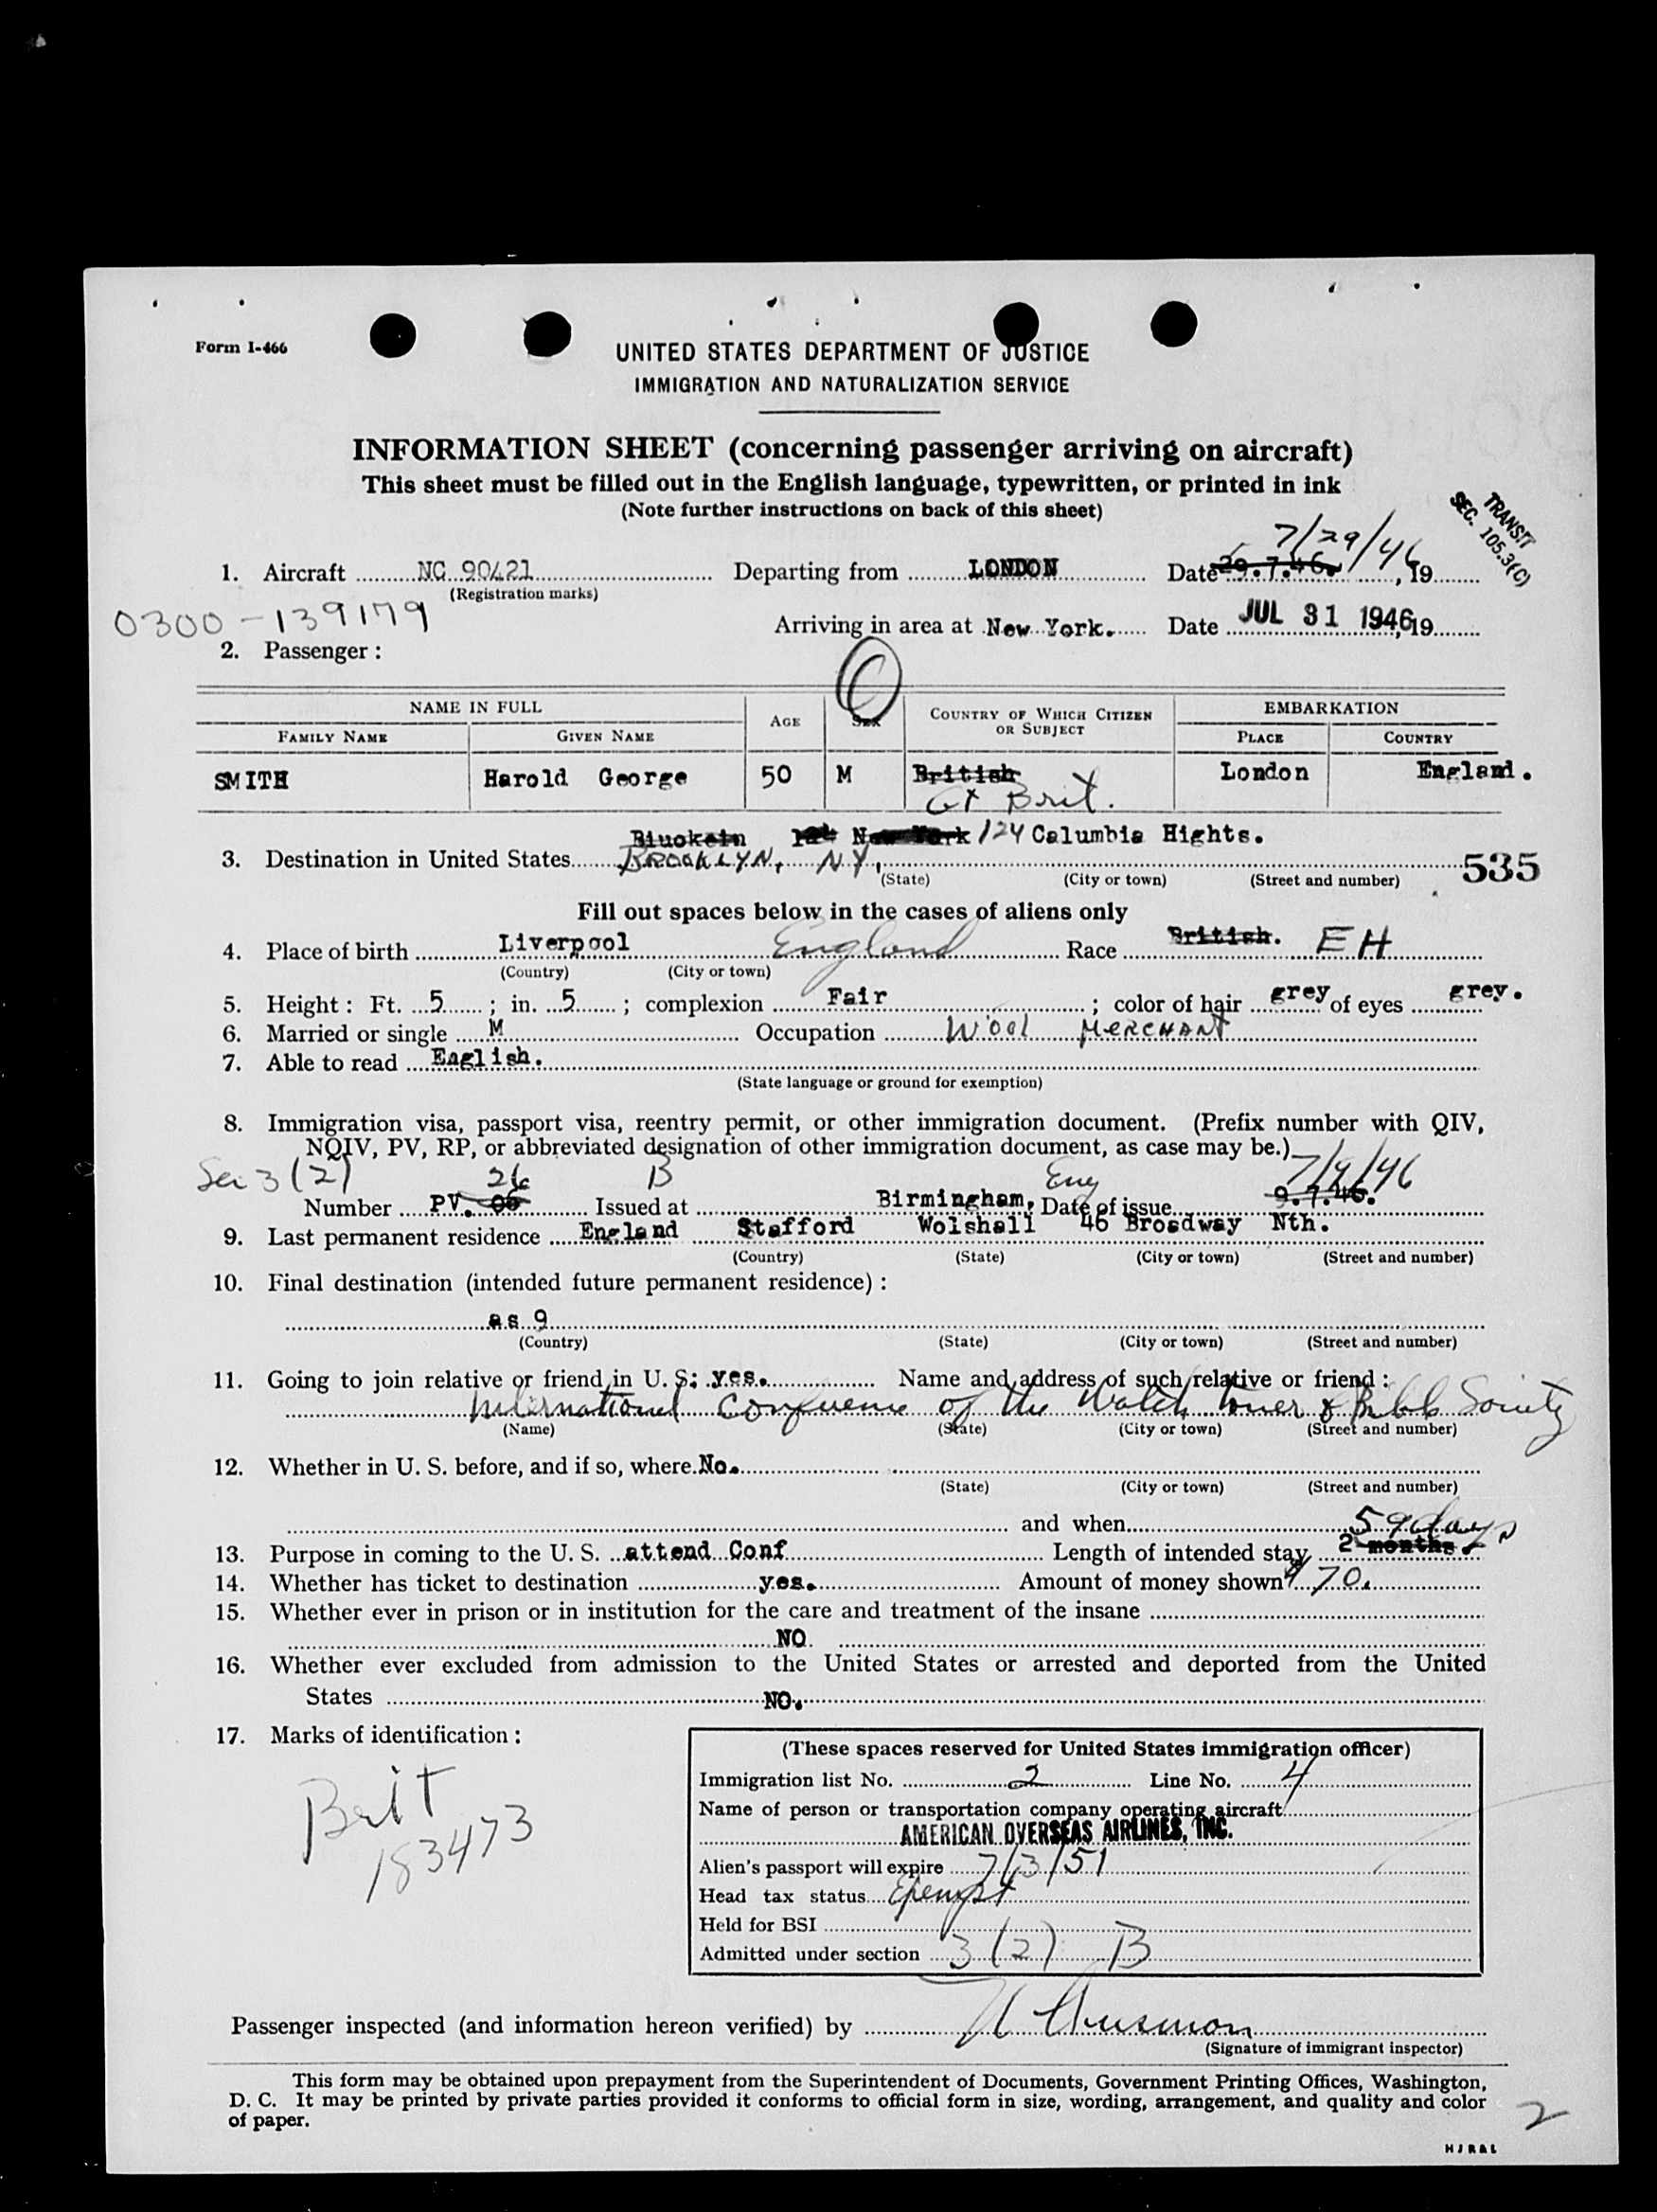 Form I-466
UNITED STATES DEPARTMENT OF JUSTICE
IMMIGRATION AND NATURALIZATION SERVICE
INFORMATION SHEET (concerning passenger arriving on aircraft)
This sheet must be filled out in the English language, typewritten, or printed in ink
(Note further instructions on back of this sheet)
TRANSIT
SEC. 105.3(C)
7/29/46
1. Aircraft NC 90421 Departing from LONDON Date 29.7.46. , 19
(Registration marks)
0300-139179
Arriving in area at New York. Date JUL 31 1946, 19
2. Passenger :
NAME IN FULL AGE SEX COUNTRY OF WHICH CITIZEN OR SUBJECT EMBARKATION
FAMILY NAME GIVEN NAME PLACE COUNTRY
SMITH Harold George 50 M British London England.
Gt Brit.
Biuokein New York 124 Calumbia Hights.
3. Destination in United States BROOKLYN, NY,
(State) (City or town) (Street and number)
535
Fill out spaces below in the cases of aliens only
4. Place of birth Liverpool England Race British. EH
(Country) (City or town)
5. Height : Ft. 5 ; in. 5 ; complexion Fair ; color of hair grey of eyes grey.
6. Married or single M Occupation Wool MERCHANT
7. Able to read English.
(State language or ground for exemption)
8. Immigration visa, passport visa, reentry permit, or other immigration document. (Prefix number with QIV,
NQIV, PV, RP, or abbreviated designation of other immigration document, as case may be.)
Sec 3 (2) 26 B Eng 7/9/46
Number PV. Issued at Birmingham, Date of issue 9.7.46.
9. Last permanent residence England Stafford Wolshall 46 Broadway Nth.
(Country) (State) (City or town) (Street and number)
10. Final destination (intended future permanent residence) :
as 9
(Country) (State) (City or town) (Street and number)
11. Going to join relative or friend in U. S; yes. Name and address of such relative or friend :
International Conference of the Watch Tower & Bible Society
(Name) (State) (City or town) (Street and number)
12. Whether in U. S. before, and if so, where. No.
(State) (City or town) (Street and number)
and when
59 days
13. Purpose in coming to the U. S. attend Conf Length of intended stay 2 months.
14. Whether has ticket to destination yes. Amount of money shown $ 70.
15. Whether ever in prison or in institution for the care and treatment of the insane
NO
16. Whether ever excluded from admission to the United States or arrested and deported from the United
States NO.
17. Marks of identification :
Brit
183473
(These spaces reserved for United States immigration officer)
Immigration list No. 2 Line No. 4
Name of person or transportation company operating aircraft
AMERICAN OVERSEAS AIRLINES, INC.
Alien's passport will expire 7/3/51
Head tax status Exempt
Held for BSI
Admitted under section 3 (2) B
Passenger inspected (and information hereon verified) by
(Signature of immigrant inspector)
This form may be obtained upon prepayment from the Superintendent of Documents, Government Printing Offices, Washington,
D. C. It may be printed by private parties provided it conforms to official form in size, wording, arrangement, and quality and color
of paper.
2